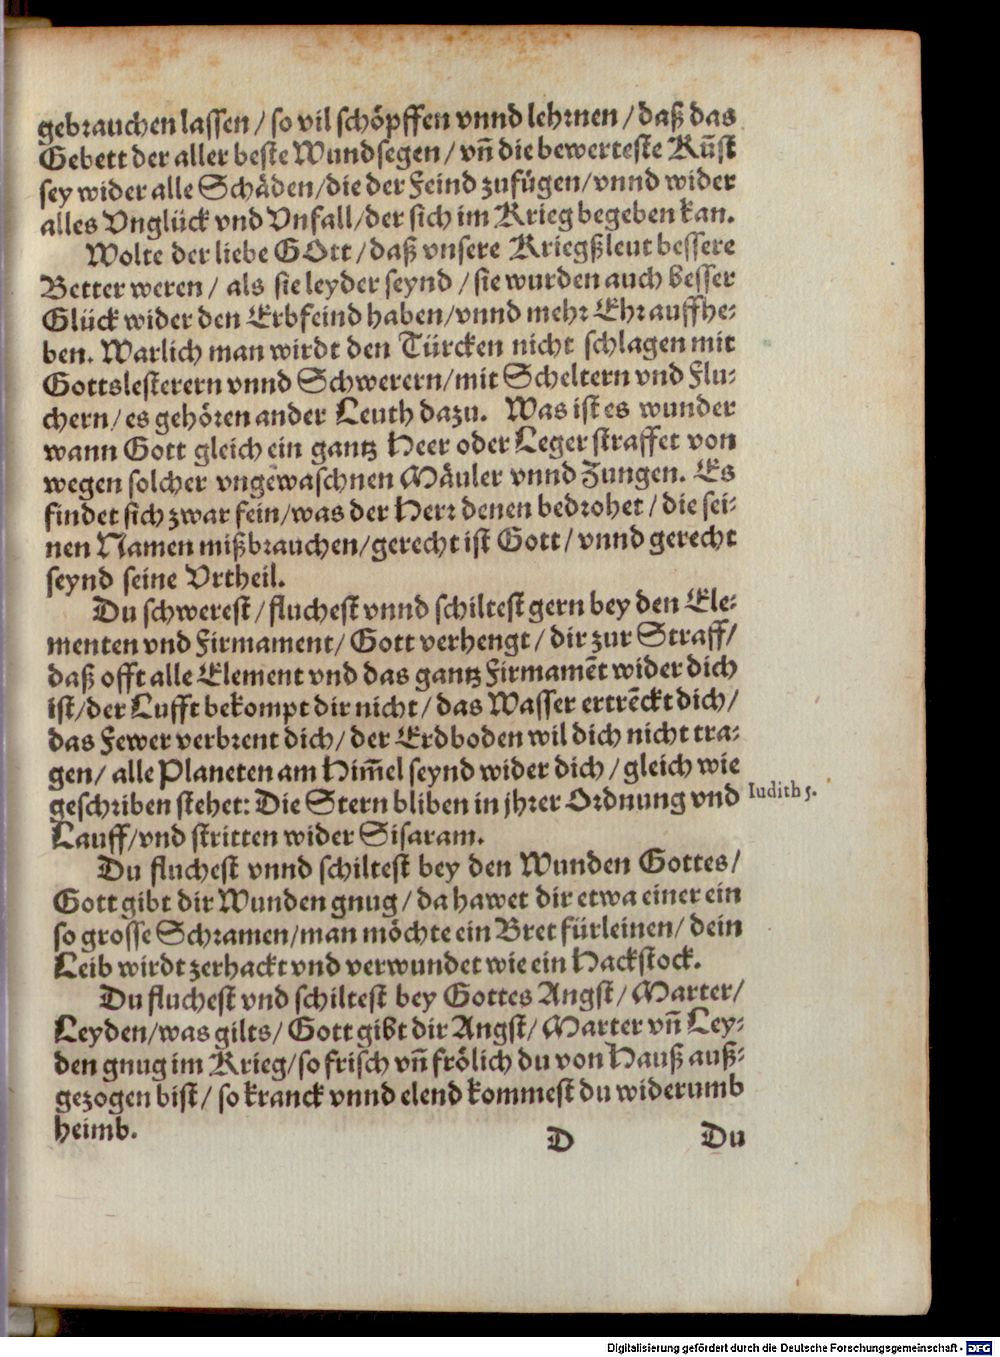 gebrauchen lassen / so vil schöpffen vnnd lehrnen / daß das
Gebett der aller beste Wundsegen / vn̄ die bewerteste Kūst
sey wider alle Schäden/die der Feind zufügen/vnnd wider
alles Vnglück vnd Vnfall/der sich im Krieg begeben kan.
Wolte der liebe GOtt / daß vnsere Kriegßleut bessere
Better weren / als sie leyder seynd / sie wurden auch besser
Glück wider den Erbfeind haben/vnnd mehr Ehr auffhe⸗
ben. Warlich man wirdt den Türcken nicht schlagen mit
Gottslesterern vnnd Schwerern/mit Scheltern vnd Flu⸗
chern/es gehören ander Leuth dazu. Was ist es wunder
wann Gott gleich ein gantz Heer oder Leger straffet von
wegen solcher vngewaschnen Mäuler vnnd Zungen. Es
findet sich zwar fein/was der Herr denen bedrohet / die sei⸗
nen Namen mißbrauchen/gerecht ist Gott/ vnnd gerecht
seynd seine Vrtheil.
Du schwerest / fluchest vnnd schiltest gern bey den Ele⸗
menten vnd Firmament/ Gott verhengt / dir zur Straff/
daß offt alle Element vnd das gantz Firmamēt wider dich
ist/der Lufft bekompt dir nicht / das Wasser ertrēckt dich/
das Fewer verbrent dich/ der Erdboden wil dich nicht tra⸗
gen/ alle Planeten am Him̄el seynd wider dich / gleich wie
geschriben stehet: Die Stern bliben in jhrer Ordnung vnd
Iudith 5.
Lauff/vnd stritten wider Sisaram.
Du fluchest vnnd schiltest bey den Wunden Gottes/
Gott gibt dir Wunden gnug / da hawet dir etwa einer ein
so grosse Schramen/man möchte ein Bret fürleinen/ dein
Leib wirdt zerhackt vnd verwundet wie ein Hackstock.
Du fluchest vnd schiltest bey Gottes Angst/ Marter/
Leyden/was gilts/ Gott gibt dir Angst/ Marter vn̄ Ley⸗
den gnug im Krieg/so frisch vn̄ frölich du von Hauß auß⸗
gezogen bist/ so kranck vnnd elend kommest du widerumb
heimb.
D Du
Digitalisierung gefördert durch die Deutsche Forschungsgemeinschaft - DFG